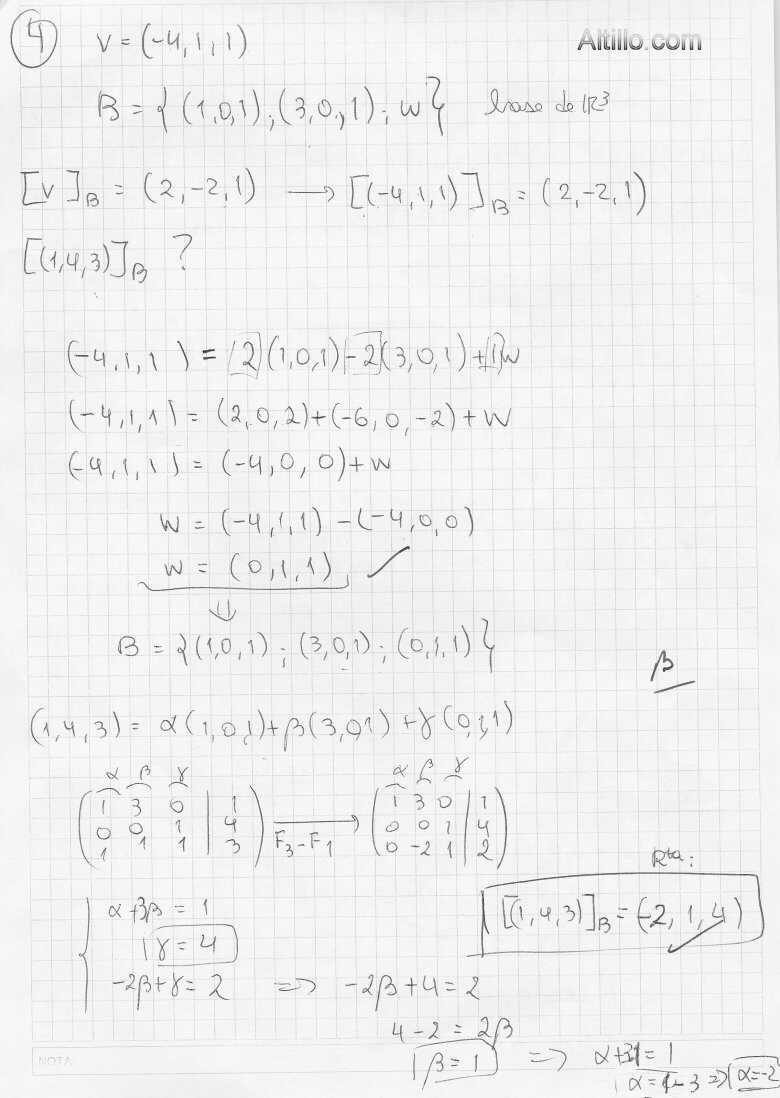 4 V = (-4, 1, 1)
Altillo.com
B = { (1,0,1) ; (3,0,1) ; W } base de R³
[V]_B = (2, -2, 1) → [(-4,1,1)]_B = (2,-2,1)
[(1,4,3)]_B ?
(-4, 1, 1) = 2(1,0,1) -2(3,0,1) + 1W
(-4,1,1) = (2,0,2)+(-6,0,-2)+W
(-4,1,1) = (-4,0,0)+W
W = (-4,1,1) -(-4,0,0)
W = (0,1,1) ✓
⇓
B = {(1,0,1) ; (3,0,1) ; (0,1,1)}
β
(1,4,3) = α(1,0,1)+β(3,0,1) +γ(0,1,1)
α β γ α β γ
1 3 0 | 1 1 3 0 | 1
0 0 1 | 4 → 0 0 1 | 4
1 1 1 | 3 F₃-F₁ 0 -2 1 | 2
Rta:
[(1,4,3)]_B = (-2, 1, 4)
α+3β = 1
γ = 4
-2β+γ = 2 => -2β+4 = 2
4-2 = 2β
β = 1 => α+3·1 = 1
α = 1-3 => α=-2
NOTA